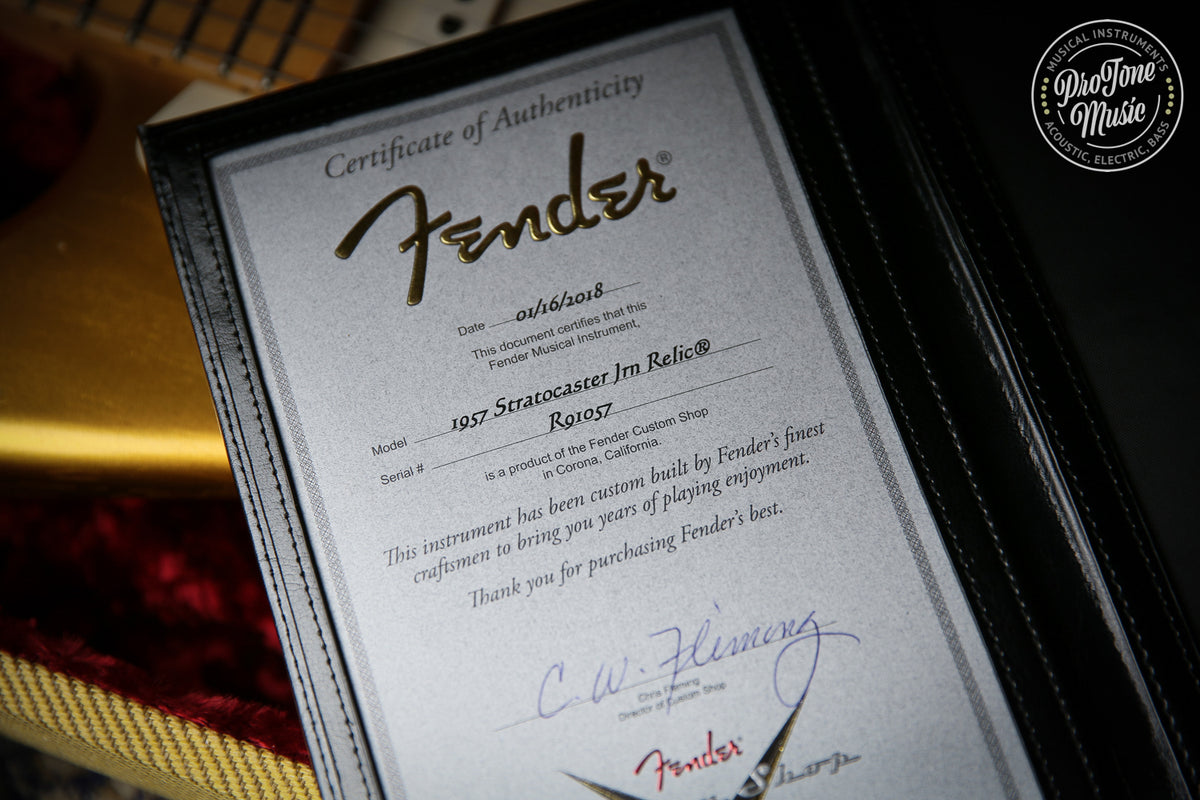 MUSICAL INSTRUMENTS
ProTone
Music
ACOUSTIC, ELECTRIC, BASS
Certificate of Authenticity
Fender®
Date 01/16/2018
This document certifies that this
Fender Musical Instrument,
Model 1957 Stratocaster Jrn Relic®
Serial # R91057
is a product of the Fender Custom Shop
in Corona, California.
This instrument has been custom built by Fender's finest
craftsmen to bring you years of playing enjoyment.
Thank you for purchasing Fender's best.
C. W. Fleming
Chris Fleming
Director of Custom Shop
Fender®
Shop